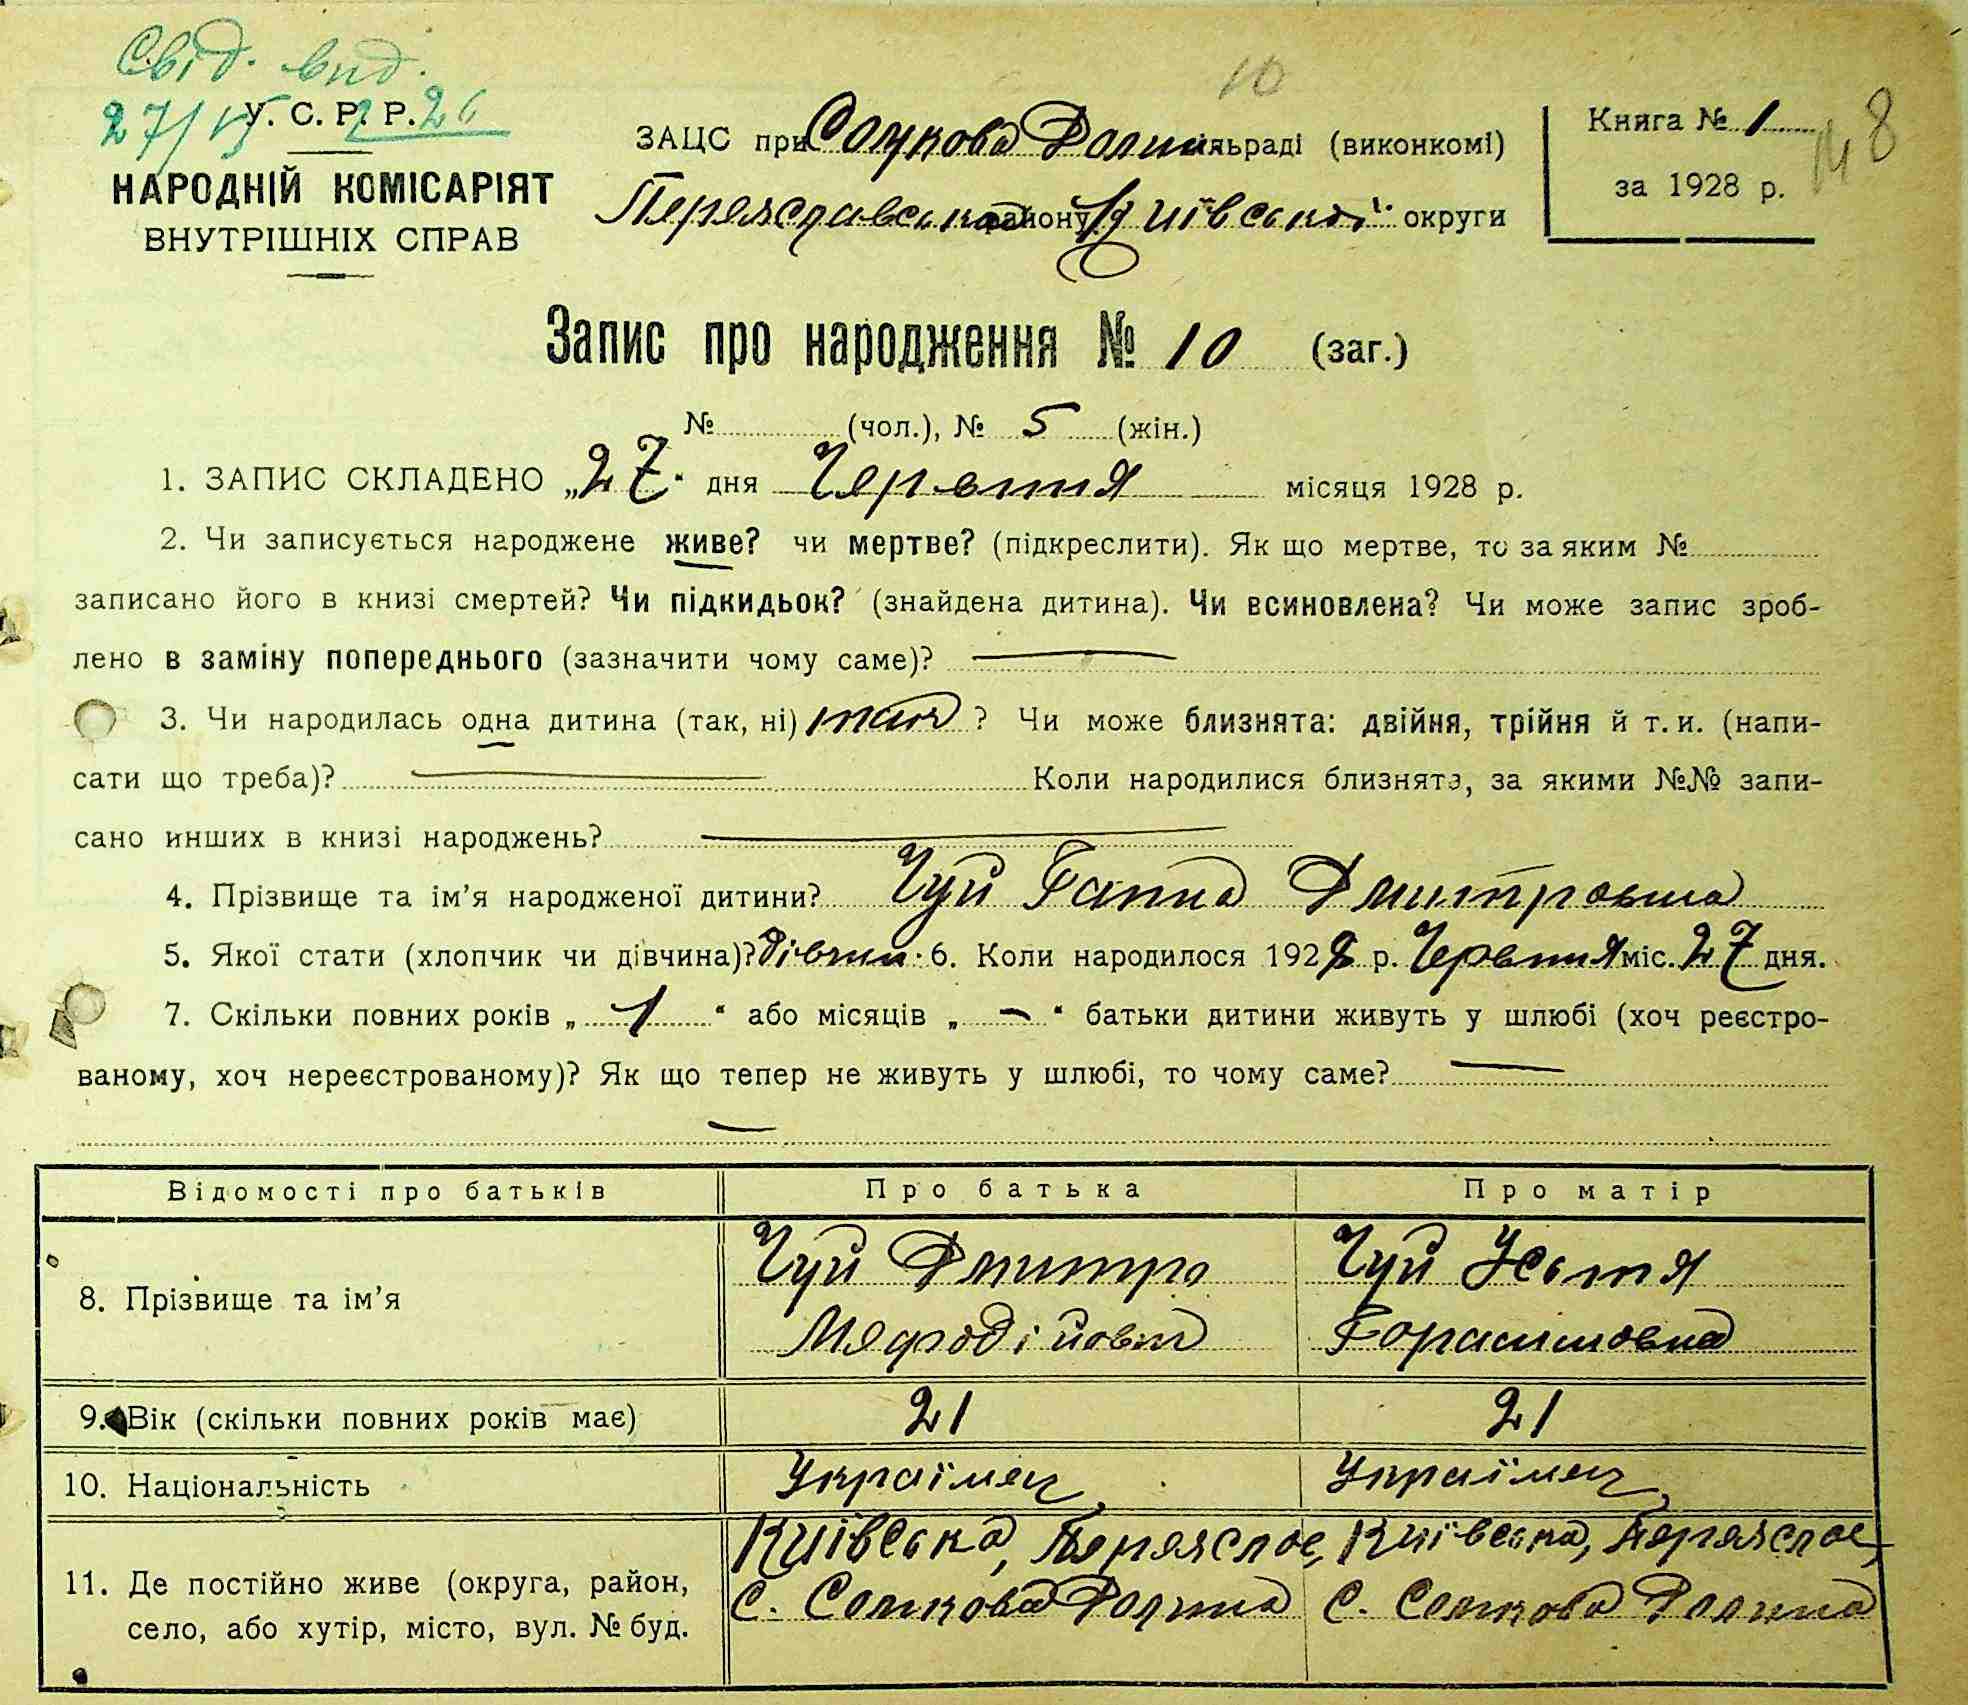 Свід. вид.
27/IV 26
У. С. Р. Р.
НАРОДНІЙ КОМІСАРІЯТ
ВНУТРІШНІХ СПРАВ
10
ЗАЦС при Сомкова Долин сільраді (виконкомі)
Переяславська району Київської округи
Книга № 1
за 1928 р.
148
Запис про народження № 10 (заг.)
№ (чол.), № 5 (жін.)
1. ЗАПИС СКЛАДЕНО „27“ дня Червтня місяця 1928 р.
2. Чи записується народжене живе? чи мертве? (підкреслити). Як що мертве, то за яким №
записано його в книзі смертей? Чи підкидьок? (знайдена дитина). Чи всиновлена? Чи може запис зроб-
лено в заміну попереднього (зазначити чому саме)? —
3. Чи народилась одна дитина (так, ні) так ? Чи може близнята: двійня, трійня й т. и. (напи-
сати що треба)? — Коли народилися близнята, за якими №№ запи-
сано инших в книзі народжень? —
4. Прізвище та ім’я народженої дитини? Чуй Ганна Дмитровна
5. Якої стати (хлопчик чи дівчина)? дівчин. 6. Коли народилося 1928 р. Червтня міс. 27 дня.
7. Скільки повних років „ 1 “ або місяців „ — “ батьки дитини живуть у шлюбі (хоч реєстро-
ваному, хоч нереєстрованому)? Як що тепер не живуть у шлюбі, то чому саме? —
—
Відомості про батьків Про батька Про матір
8. Прізвище та ім’я Чуй Дмитро Чуй Устя
Мефодійович Горасимовна
9. Вік (скільки повних років має) 21 21
10. Національність Українец Українец
11. Де постійно живе (округа, район, Київська, Переяслов, Київська, Переяслов,
село, або хутір, місто, вул. № буд. с. Сомкова Долина с. Сомкова Долина